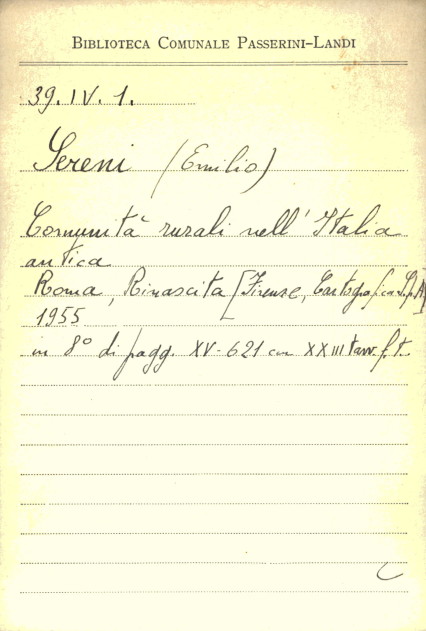 BIBLIOTECA COMUNALE PASSERINI-LANDI
39.IV.1.
Sereni (Emilio)
Comunità rurali nell'Italia
antica
Roma, Rinascita [Firenze, Cartografica S.p.A]
1955
in 8° di pagg. XV-621 con XXIII tavv. f.t.